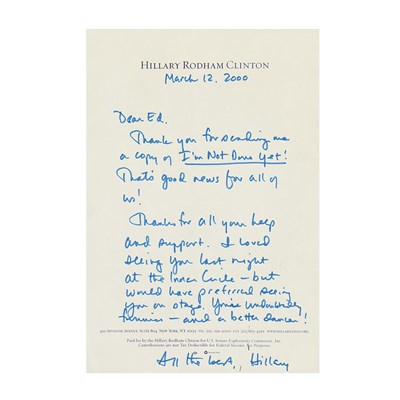 HILLARY RODHAM CLINTON
March 12, 2000
Dear Ed,
Thank you for sending me
a copy of I'm Not Done Yet!
That's good news for all of
us!
Thanks for all your help
and support. I loved
seeing you last night
at the Inner Circle – but
would have preferred seeing
you on stage. You're undoubtedly
funnier – and a better dancer!
NEW YORK, NY
Paid for by the Hillary Rodham Clinton for U.S. Senate Exploratory Committee, Inc.
Contributions are not Tax Deductible for Federal Income Tax Purposes.
All the best, Hillary